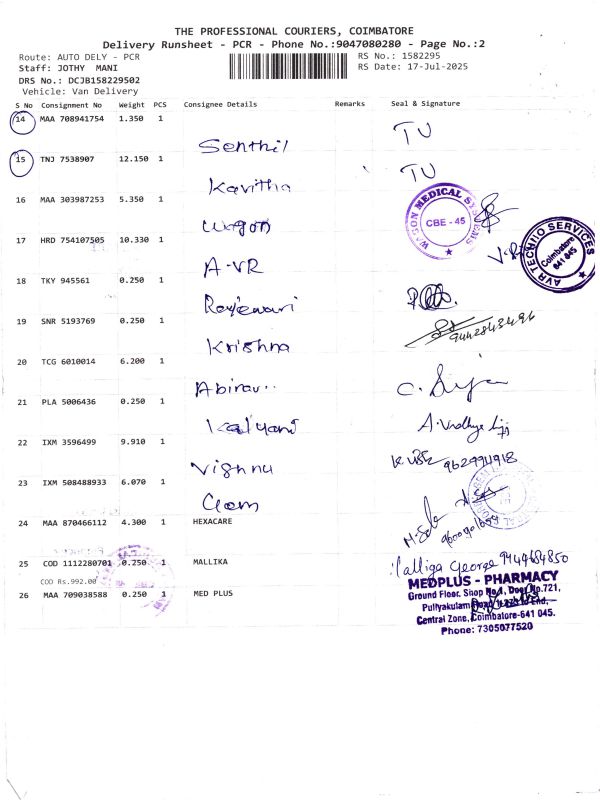 THE PROFESSIONAL COURIERS, COIMBATORE
Delivery Runsheet - PCR - Phone No.:9047080280 - Page No.:2
Route: AUTO DELY - PCR
RS No.: 1582295
Staff: JOTHY MANI
RS Date: 17-Jul-2025
DRS No.: DCJB158229502
Vehicle: Van Delivery
S No Consignment No Weight PCS Consignee Details Remarks Seal & Signature
14 MAA 708941754 1.350 1 TU
Senthil
15 TNJ 7538907 12.150 1 TU
Kavitha
16 MAA 303987253 5.350 1
WAGON MEDICAL SYSTEMS
CBE - 45
Wagon
17 HRD 754107505 10.330 1
AVR TECHNO SERVICES
Coimbatore
641 045
A-VR
18 TKY 945561 0.250 1
19 SNR 5193769 0.250 1
9442843496
Krishna
20 TCG 6010014 6.200 1
21 PLA 5006436 0.250 1
Kalyani
22 IXM 3596499 9.910 1
9629941918
Vishnu
23 IXM 508488933 6.070 1
24 MAA 870466112 4.300 1 HEXACARE
25 COD 1112280701 0.250 1 MALLIKA
COD Rs.992.00
Malliga George 9449684850
26 MAA 709038588 0.250 1 MED PLUS
MEDPLUS - PHARMACY
Ground Floor, Shop No.1, Door No.721,
Puliyakulam Road
Central Zone, Coimbatore-641 045.
Phone: 7305077520